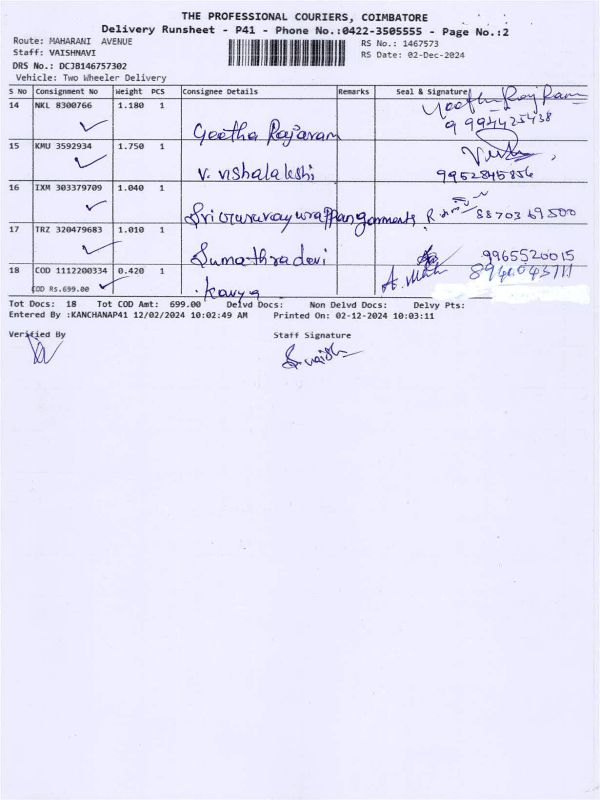 THE PROFESSIONAL COURIERS, COIMBATORE
Delivery Runsheet - P41 - Phone No.:0422-3505555 - Page No.:2
Route: MAHARANI AVENUE
RS No.: 1467573
Staff: VAISHNAVI
RS Date: 02-Dec-2024
DRS No.: DCJB146757302
Vehicle: Two Wheeler Delivery
S No Consignment No Weight PCS Consignee Details Remarks Seal & Signature
14 NKL 8300766 1.180 1
Geetha Rajaram
15 KMU 3592934 1.750 1
V. Vishalakshi 9952845856
16 IXM 303379709 1.040 1
88703 69500
17 TRZ 320479683 1.010 1
Sumathradevi 9965520015
18 COD 1112200334 0.420 1
COD Rs.699.00 Kavya
Tot Docs: 18 Tot COD Amt: 699.00 Delvd Docs: Non Delvd Docs: Delvy Pts:
Entered By :KANCHANAP41 12/02/2024 10:02:49 AM Printed On: 02-12-2024 10:03:11
Verified By Staff Signature